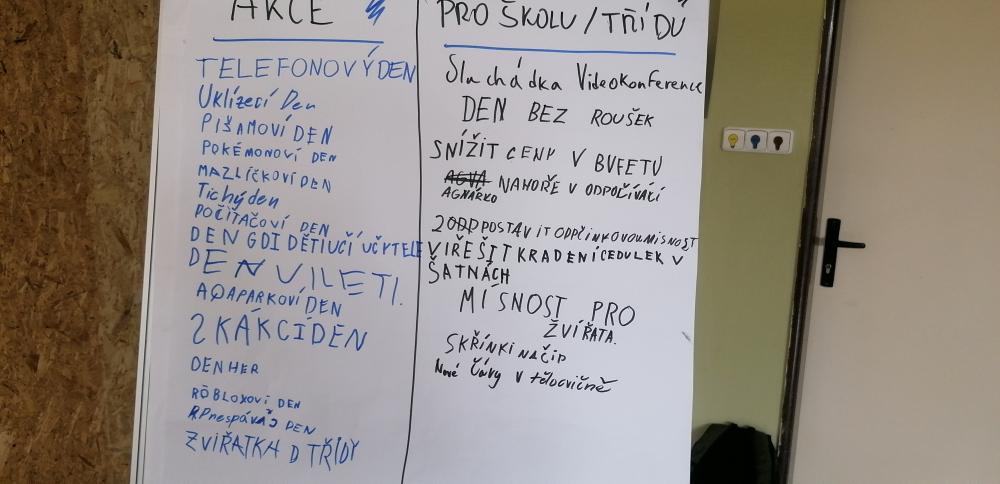 AKCE
TELEFONOVÝ DEN
Uklízecí Den
PIŠAMOVÍ DEN
POKÉMONOVÍ DEN
MAZLÍČKOVÍ DEN
Tichý den
POČÍTAČOVÍ DEN
DEN GDI DĚTI UČÍ UČYTELE
DEN VILETI.
AQAPARKOVÍ DEN
SKÁKCÍ DEN
DEN HER
RÓBLOXOVI DEN
DEN
ZVIŘATKA D TŘÍDY
PRO ŠKOLU/TŘÍDU
Sluchádka Videokonference
DEN BEZ ROUŠEK
SNÍŽIT CENY V BUFETU
AGVÁ NAHOŘE V ODPOČÍVÁCÍ
AGNÁRKO
POSTAVIT ODPČINKOVOU MISNOST
VIŘEŠIT KRADENÍ CEDULEK V
ŠATNÁCH
MÍSNOST PRO
ZVÍŘATA.
SKŘÍNKI NA ČIP
Nové Čáry v tělocvičně